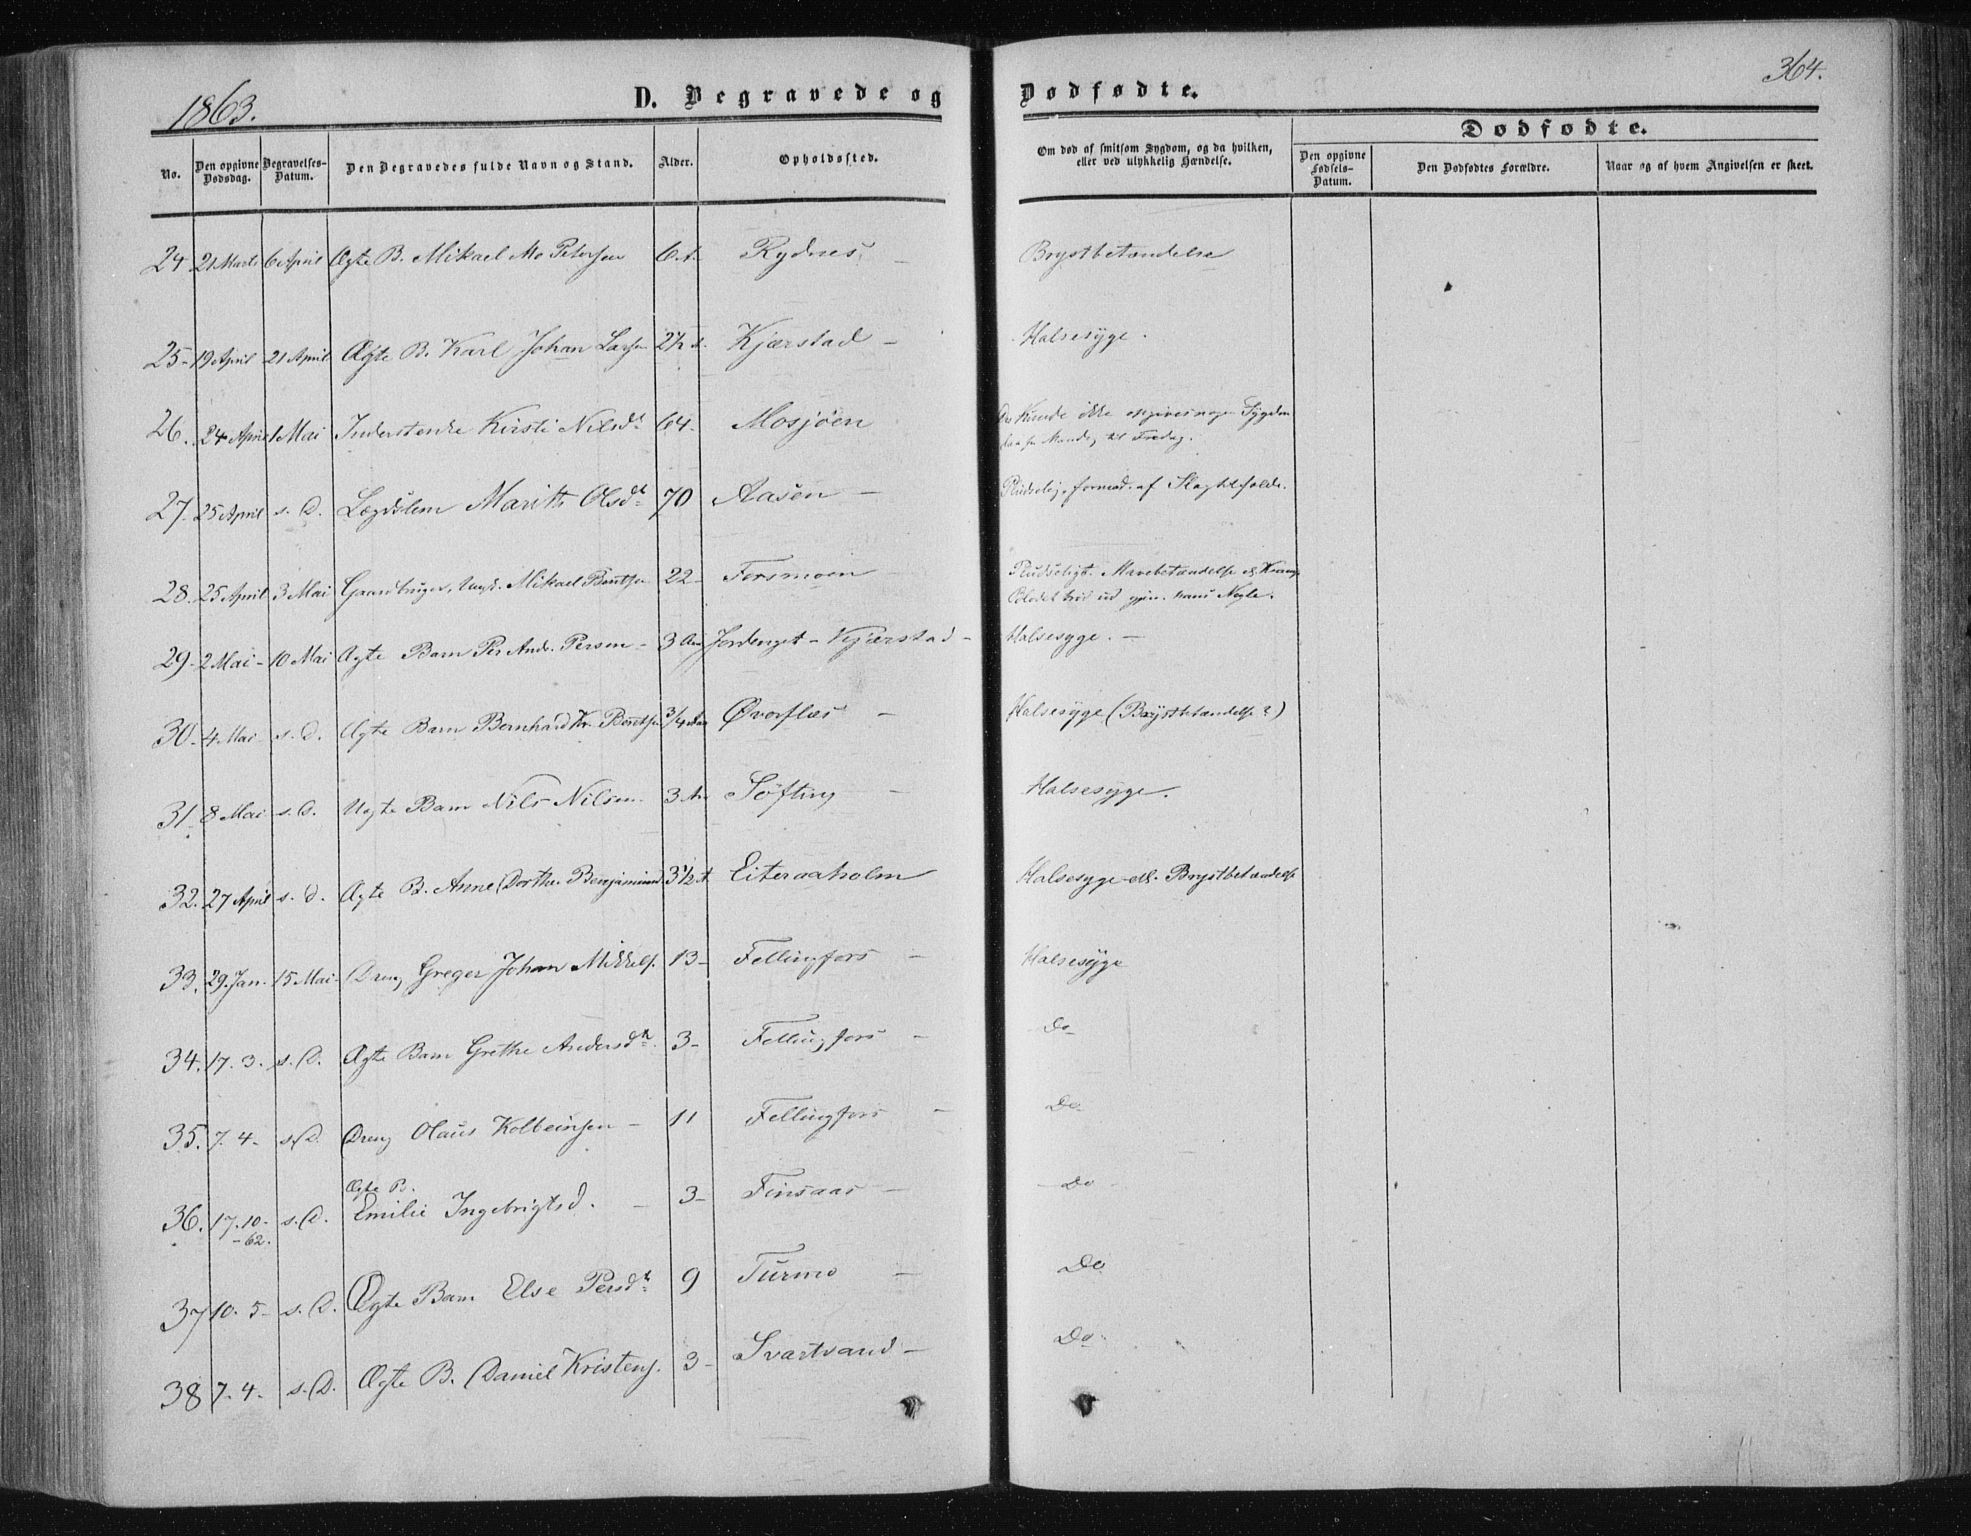 1863.
D. Begravede og
Dødfødte.
364.
Dødfødte.
No.
Den opgivne Dødsdag.
Begravelses-Datum.
Den Begravedes fulde Navn og Stand.
Alder.
Opholdssted.
Om død af smitsom Sygdom, og da hvilken, eller ved ulykkelig Hændelse.
Den opgivne Fødsels-Datum.
Den Dødfødtes Forældre.
Naar og af hvem Angivelsen er skeet.
24 21 Marts 6 April Ægte B. Mikael Mo Petersen 6 A. Rydnes Brystbetændelse
25 - 19 April 21 April Ægte B. Karl Johan Larsen 2½ A. Kjærstad - Halsesyge.
26. 24 April 1 Mai Inderstenke Kirsti Nilsdt 64. Mosjøen Kunde ikke opgives nogen Sygdom
til Fredag.
27. 25 April s. D. Lægdslem Marith Olsdt 70 Aasen - Pludselig, formod. af Slagtilfælde.
28. 25 April 3 Mai Gaardbruger, Mikael Bentsen 22 - Forsmoen Pludseligt. Mavebetændelse
Blodet ud gjen. hans
29 - 2 Mai - 10 Mai Ægte Barn Per Andr. Persen - 3 Aar Jordenget - Kjærstad - Halsesyge. -
30 - 4 Mai - s. D. Ægte Barn Bernhard Kr. Bentsen 3/4 Aar Øverflæs - Halsesyge (Brystbetændelse?)
31 - 8 Mai s. D. Uægte Barn Nils Nilsen. 3 A. Søfting - Halsesyge.
32. 27 April s. D. Ægte B. Anne Dorthe Benjamind. 3½ A Eiteraaholm Halsesyge ell. Brystbetændelse
33. 29. Jan. 15 Mai - Dreng Greger Johan Mikkels. 13 - Fellingfors - Halsesyge
34. 17. 3. s. D. Ægte Barn Grethe Andersdtr. 3 - Fellingfors - Do
35. 7. 4 - s. D. Dreng Olaus Kolbeinsen - 11 Fellingfors - Do
36. 17. 10 - 62. s. D. Ægte B. Emilie Ingebrigtsd. - 3 - Finsaas - Do
37 10. 5 - s. D. Ægte Barn Else Persdt 9 Turmo - Do
38 7. 4. s. D. Ægte B. Daniel Kristens. 3 - Svartvand - Do